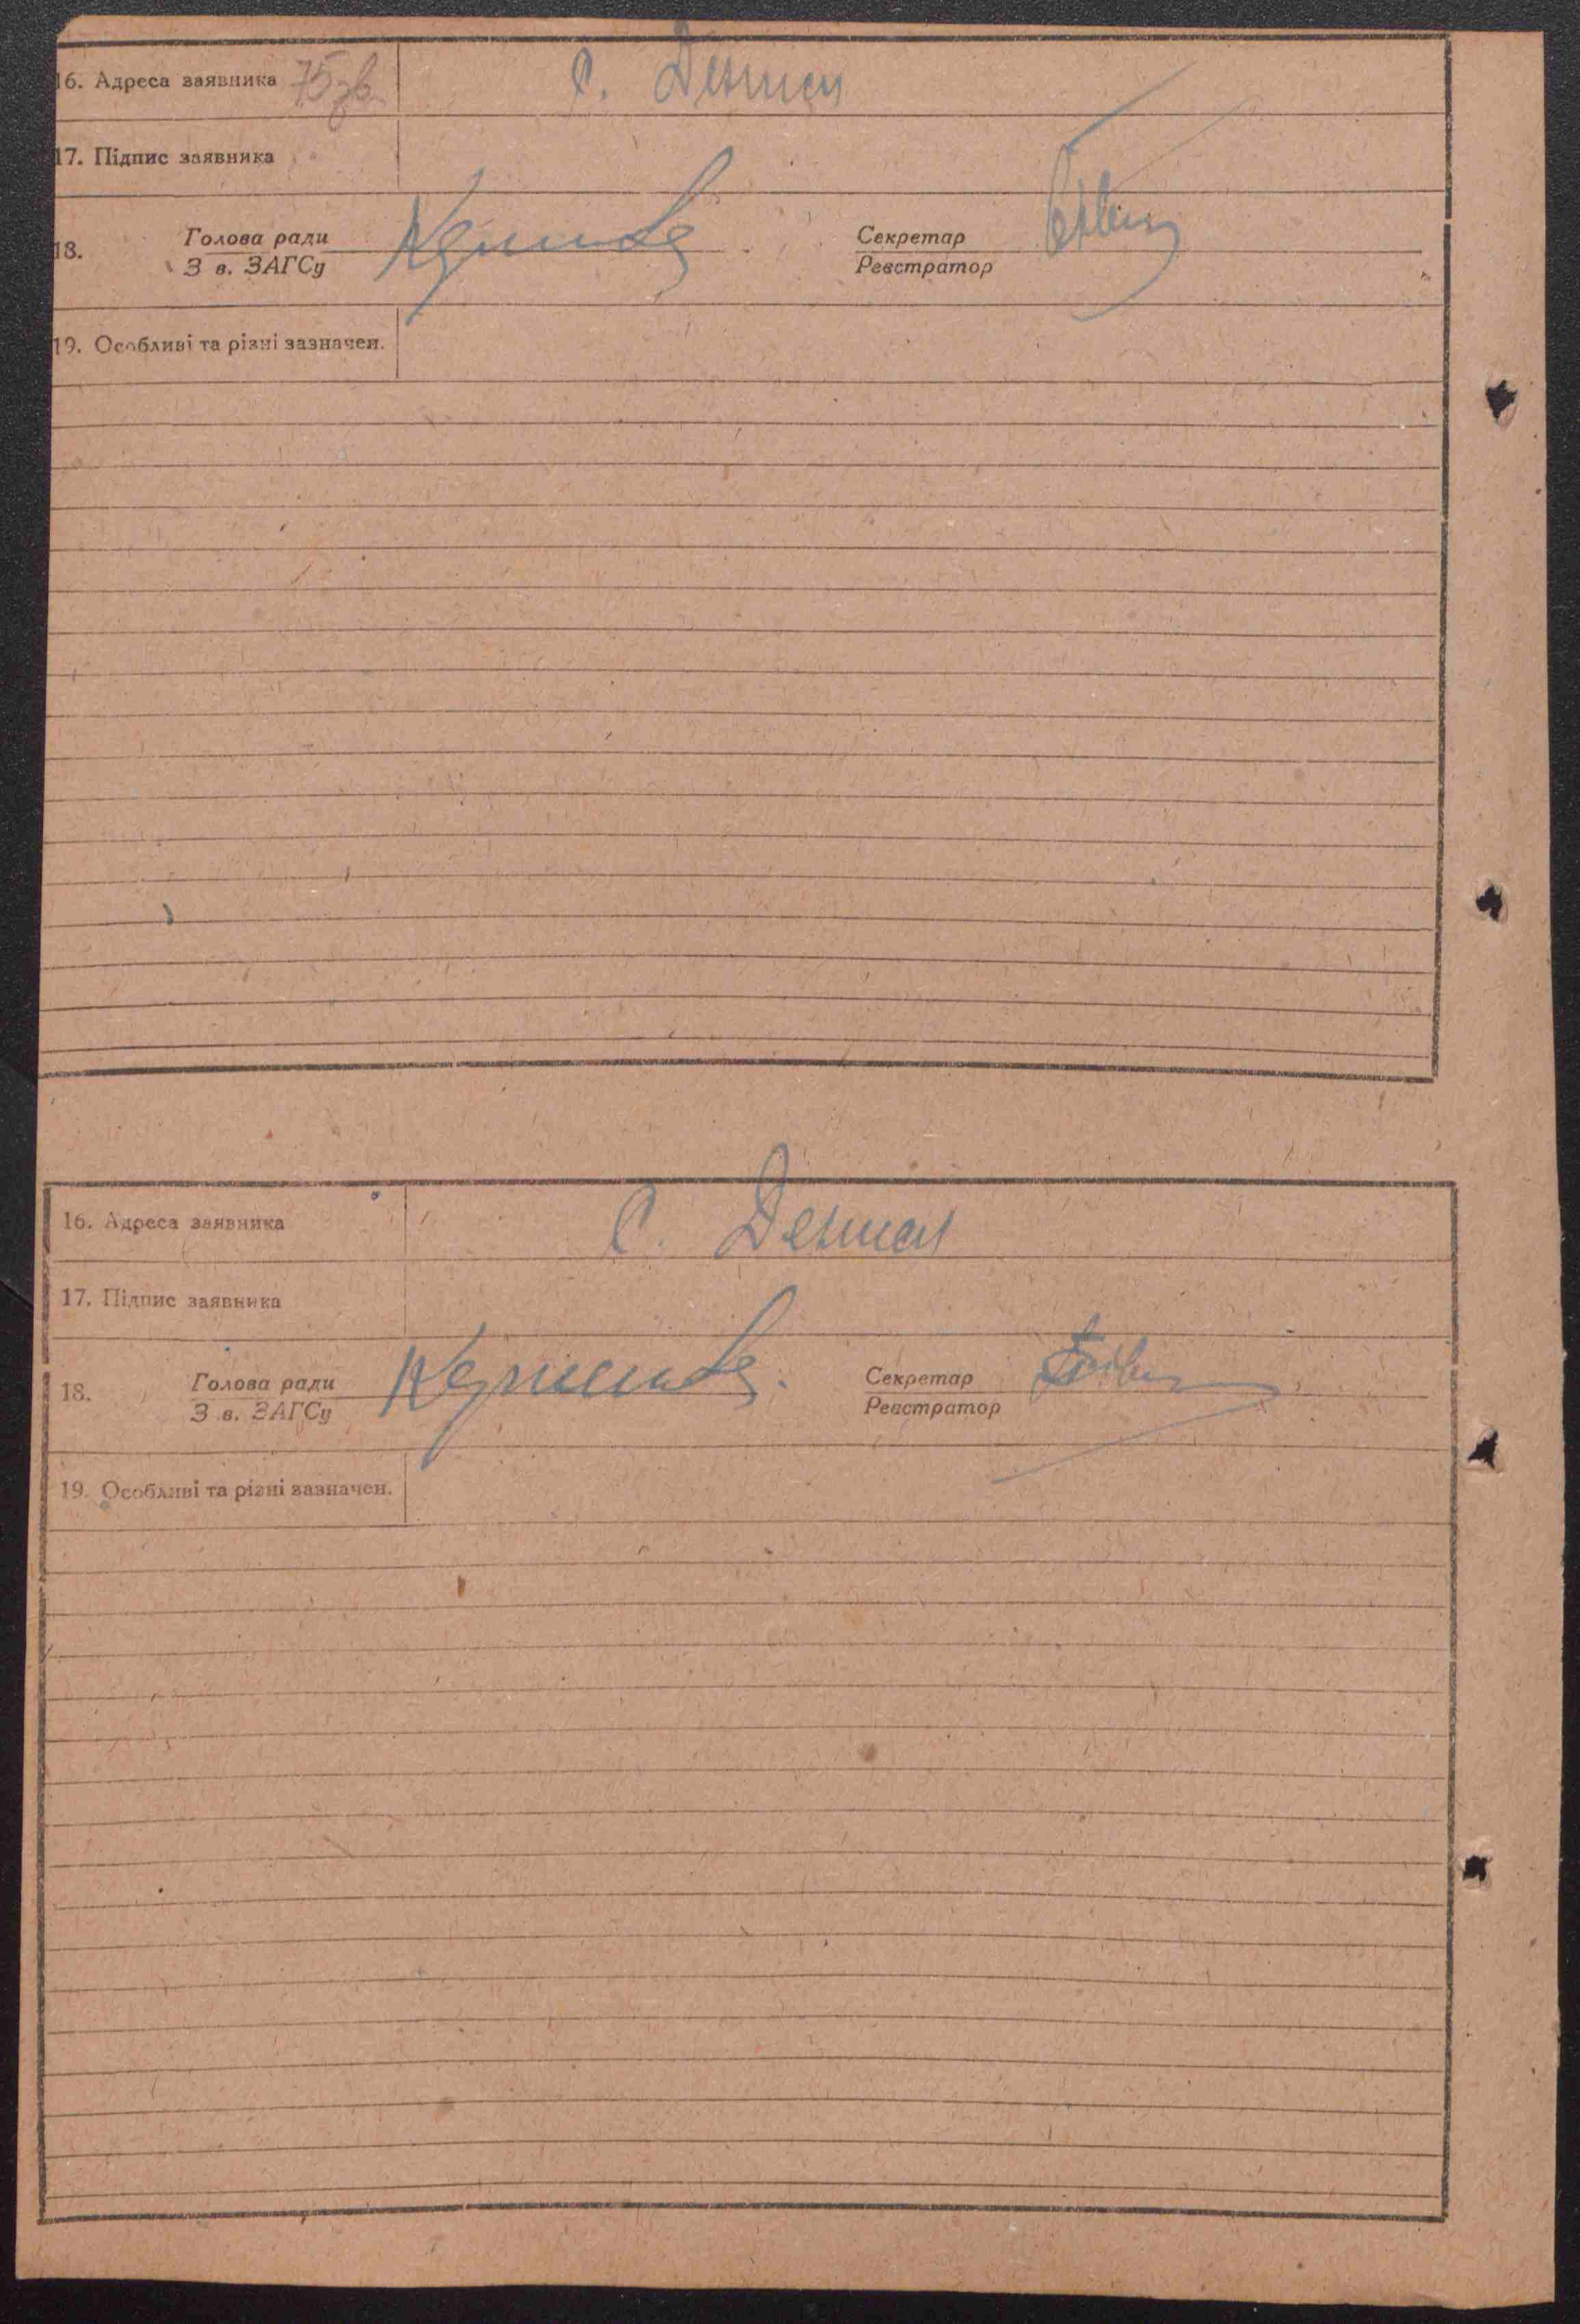 16. Адреса заявника 75зв С. Демки
17. Підпис заявника
18. Голова ради Секретар
З в. ЗАГСу Реєстратор
19. Особливі та різні зазначен.
16. Адреса заявника С.
17. Підпис заявника
18. Голова ради Секретар
З в. ЗАГСу Реєстратор
19. Особливі та різні зазначен.